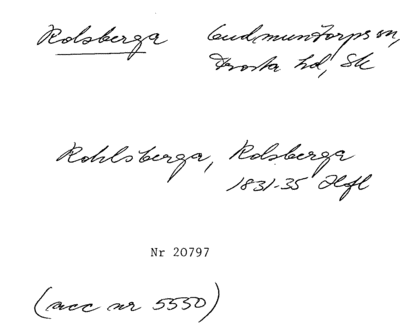 Rolsberga Gudmuntorps sn,
Frosta hd, Sk
Rohlsberga, Rolsberga
1831-35 Hfl
Nr 20797
(acc nr 5550)